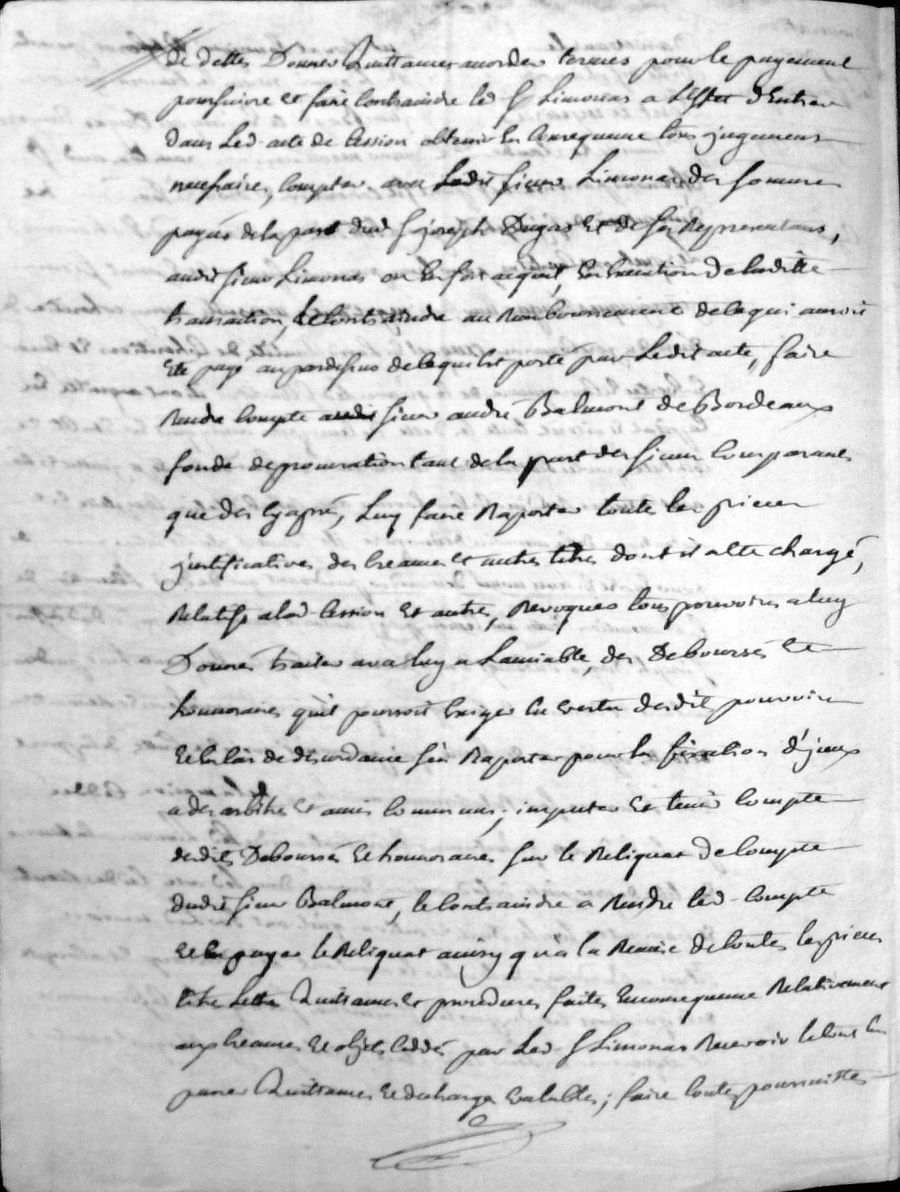 de dettes Donner Quittances accorder termes pour le payement
poursuivre et faire Contraindre led Sr Limonas a L'effet d'Entrer
dans Led acte de Cession obtenir En Consequence tous jugements
necessaire, Compter avec Ledit sieur Limonas des sommes
payées de la part dud Sr joseph Dugas Et de ses Representans,
audit sieur Limonas ou En son acquit, En Execution de laditte
transaction, le Contraindre au Remboursement de ce qui auroit
Eté payé au pardessus de ce qui Est porté par Ledit acte, faire
Rendre Compte audit sieur andré Balmont de Bordeaux
fondé de procuration tant de la part des sieurs Comparants
que des Cy après, Luy faire Raporter toute les pieces
justificatives des Creances et autres titres dont il a eté chargé,
Relatifs a lad Cession Et autres, Revoquer tous pouvoirs a luy
Donnés traiter avec luy a Lamiable, des Deboursés Et
honnoraires qu'il pourroit Exiger En vertu desdit pouvoirs
Et En Cas de discordance s'en Raporter pour la fixation d'jceux
a des arbitres Et amis Communs; imputer Et tenir Compte
desdits Deboursés Et honnoraires sur le Reliquat de Compte
dudit sieur Balmont, le Contraindre a Rendre led Compte
Et En payer le Reliquat ainsy qu'a la Remise de toutes les pieces
titre Lettre Quittances Et procedures faites En consequence Relativement
aux Creances Et objets Cedés par Led Sr Limonas Recevoir le tout En
passer Quittances Et decharge valables; faire toutes poursuittes